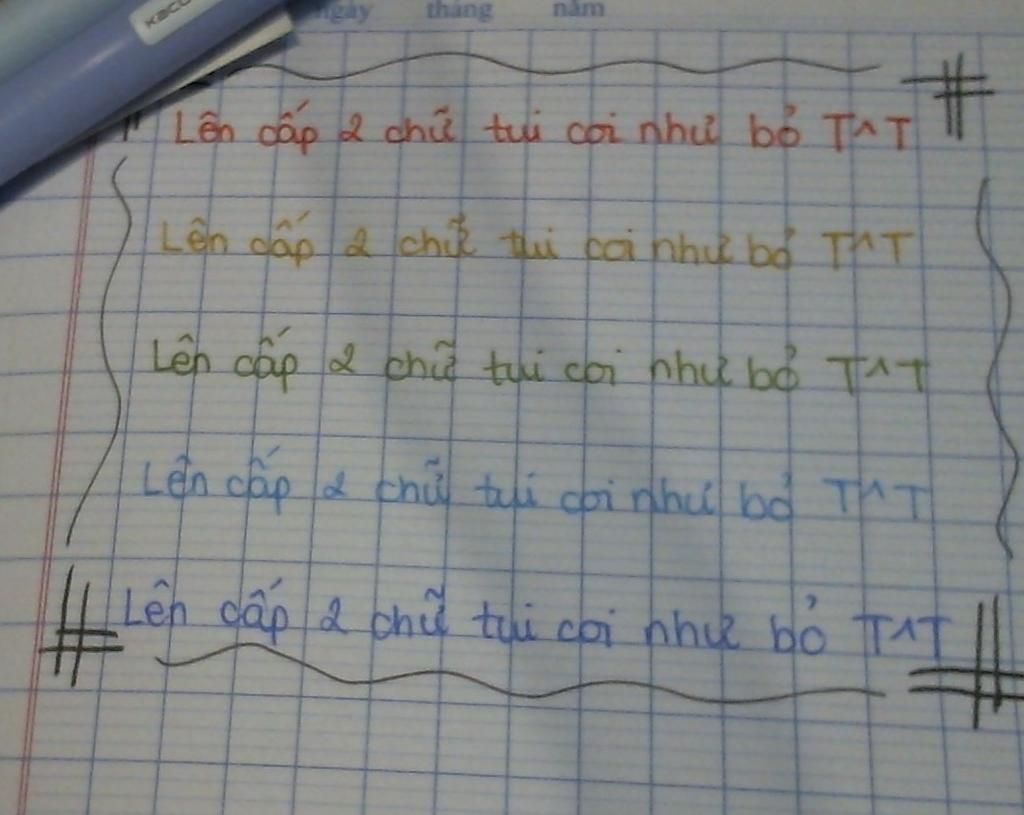 ngày tháng năm
Lên cấp 2 chữ tui coi như bỏ T^T
Lên cấp 2 chữ tui coi như bỏ T^T
Lên cấp 2 chữ tui coi như bỏ T^T
Lên cấp 2 chữ tui coi như bỏ T^T
Lên cấp 2 chữ tui coi như bỏ T^T